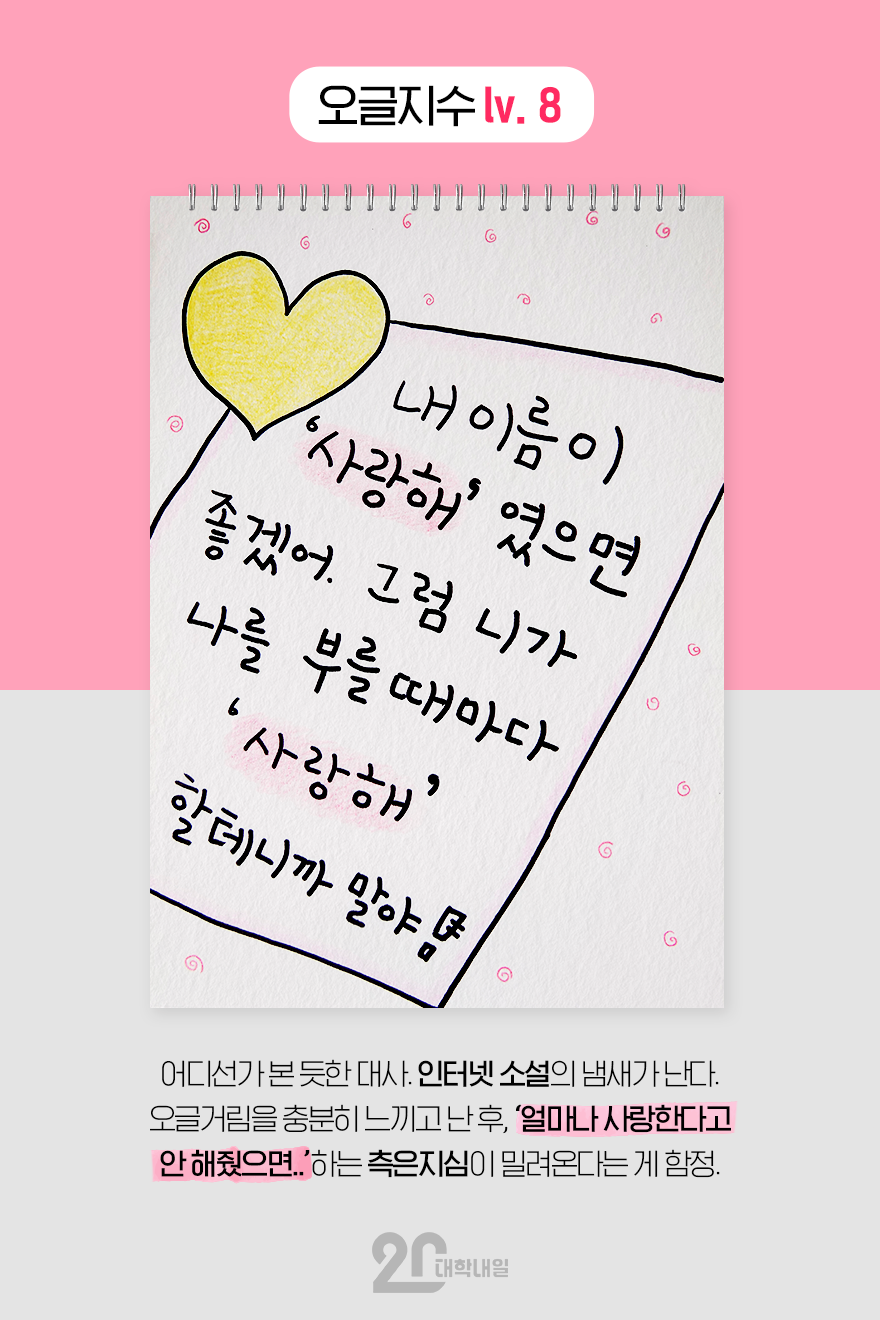 오글지수 lv. 8
내 이름이
‘사랑해’ 였으면
좋겠어. 그럼 니가
나를 부를때마다
‘사랑해’
할테니까 말야
어디선가 본 듯한 대사. 인터넷 소설의 냄새가 난다.
오글거림을 충분히 느끼고 난 후, ‘얼마나 사랑한다고
안 해줬으면..’하는 측은지심이 밀려온다는 게 함정.
20 대학내일